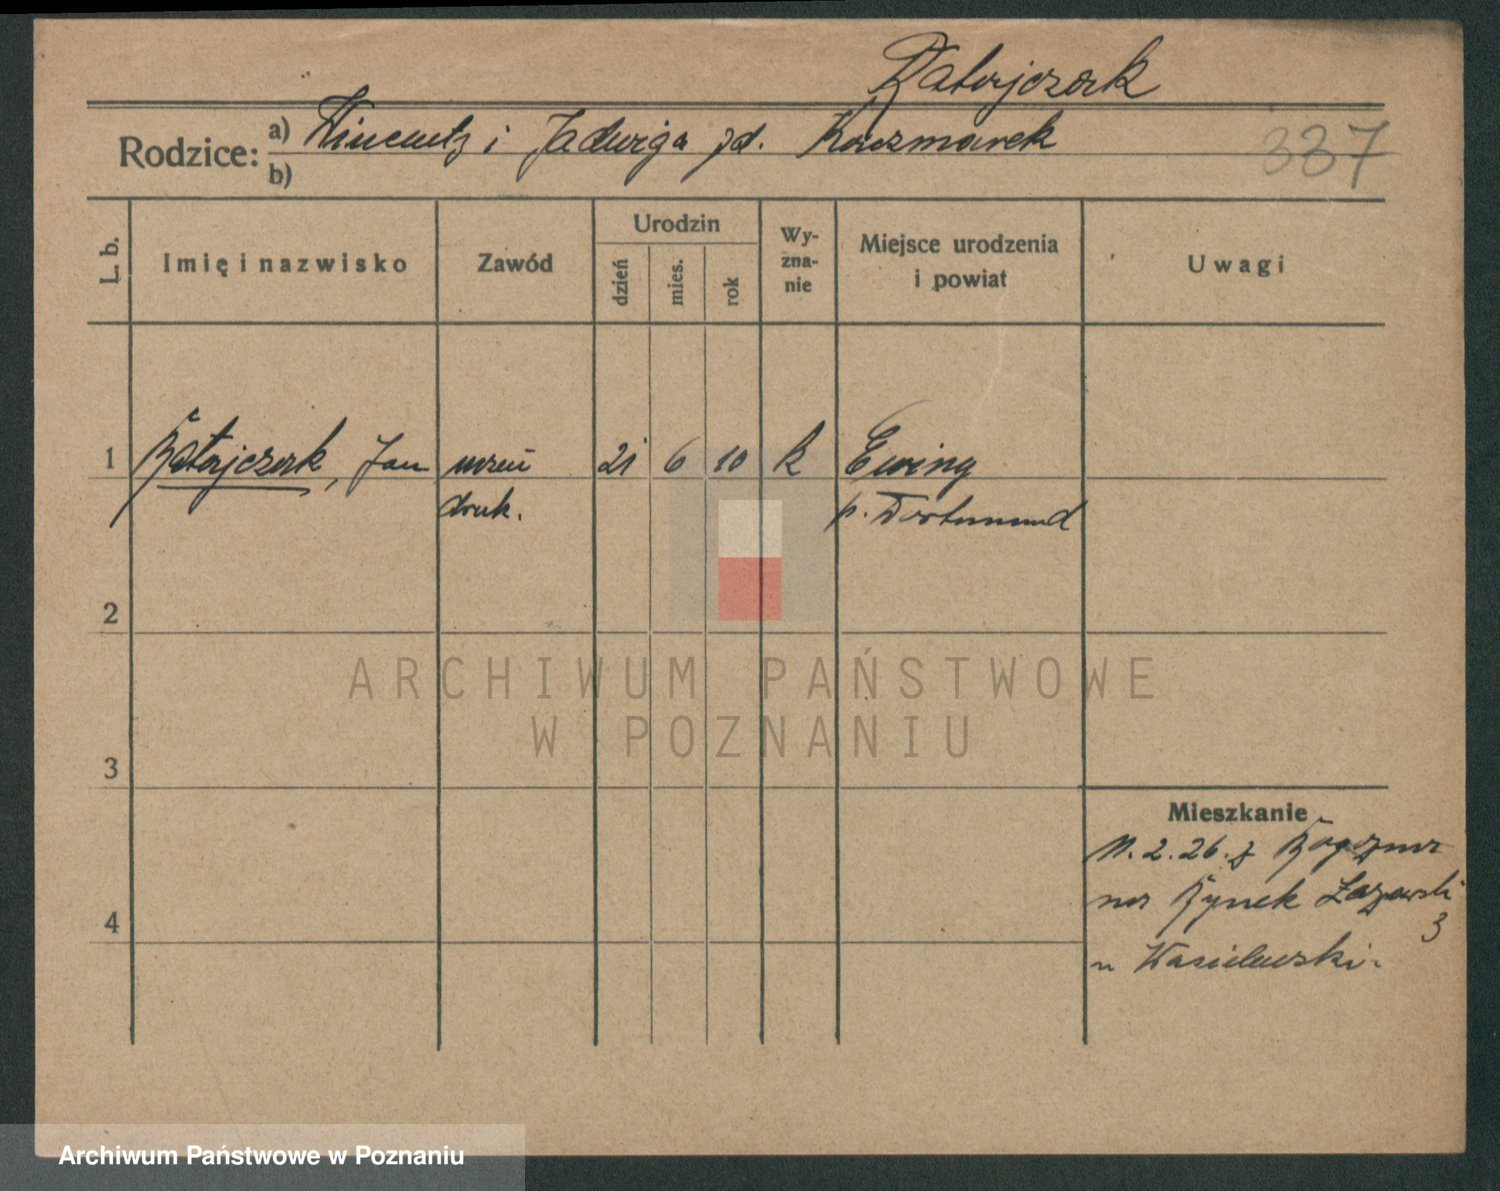 Ratajczak
Rodzice: a) Wincenty i Jadwiga zd. Kaczmarek
b)
337
L. b.
Imię i nazwisko
Zawód
Urodzin
dzień
mies.
rok
Wy-
zna-
nie
Miejsce urodzenia
i powiat
Uwagi
1 Ratajczak, Jan uczeń 21 6 10 k Ewing
druk. p. Dortmund
2
3
4
Mieszkanie
11.2.26. z
na Rynek Łazarski
3
u Wasielewski.
ARCHIWUM PAŃSTWOWE
W POZNANIU
Archiwum Państwowe w Poznaniu